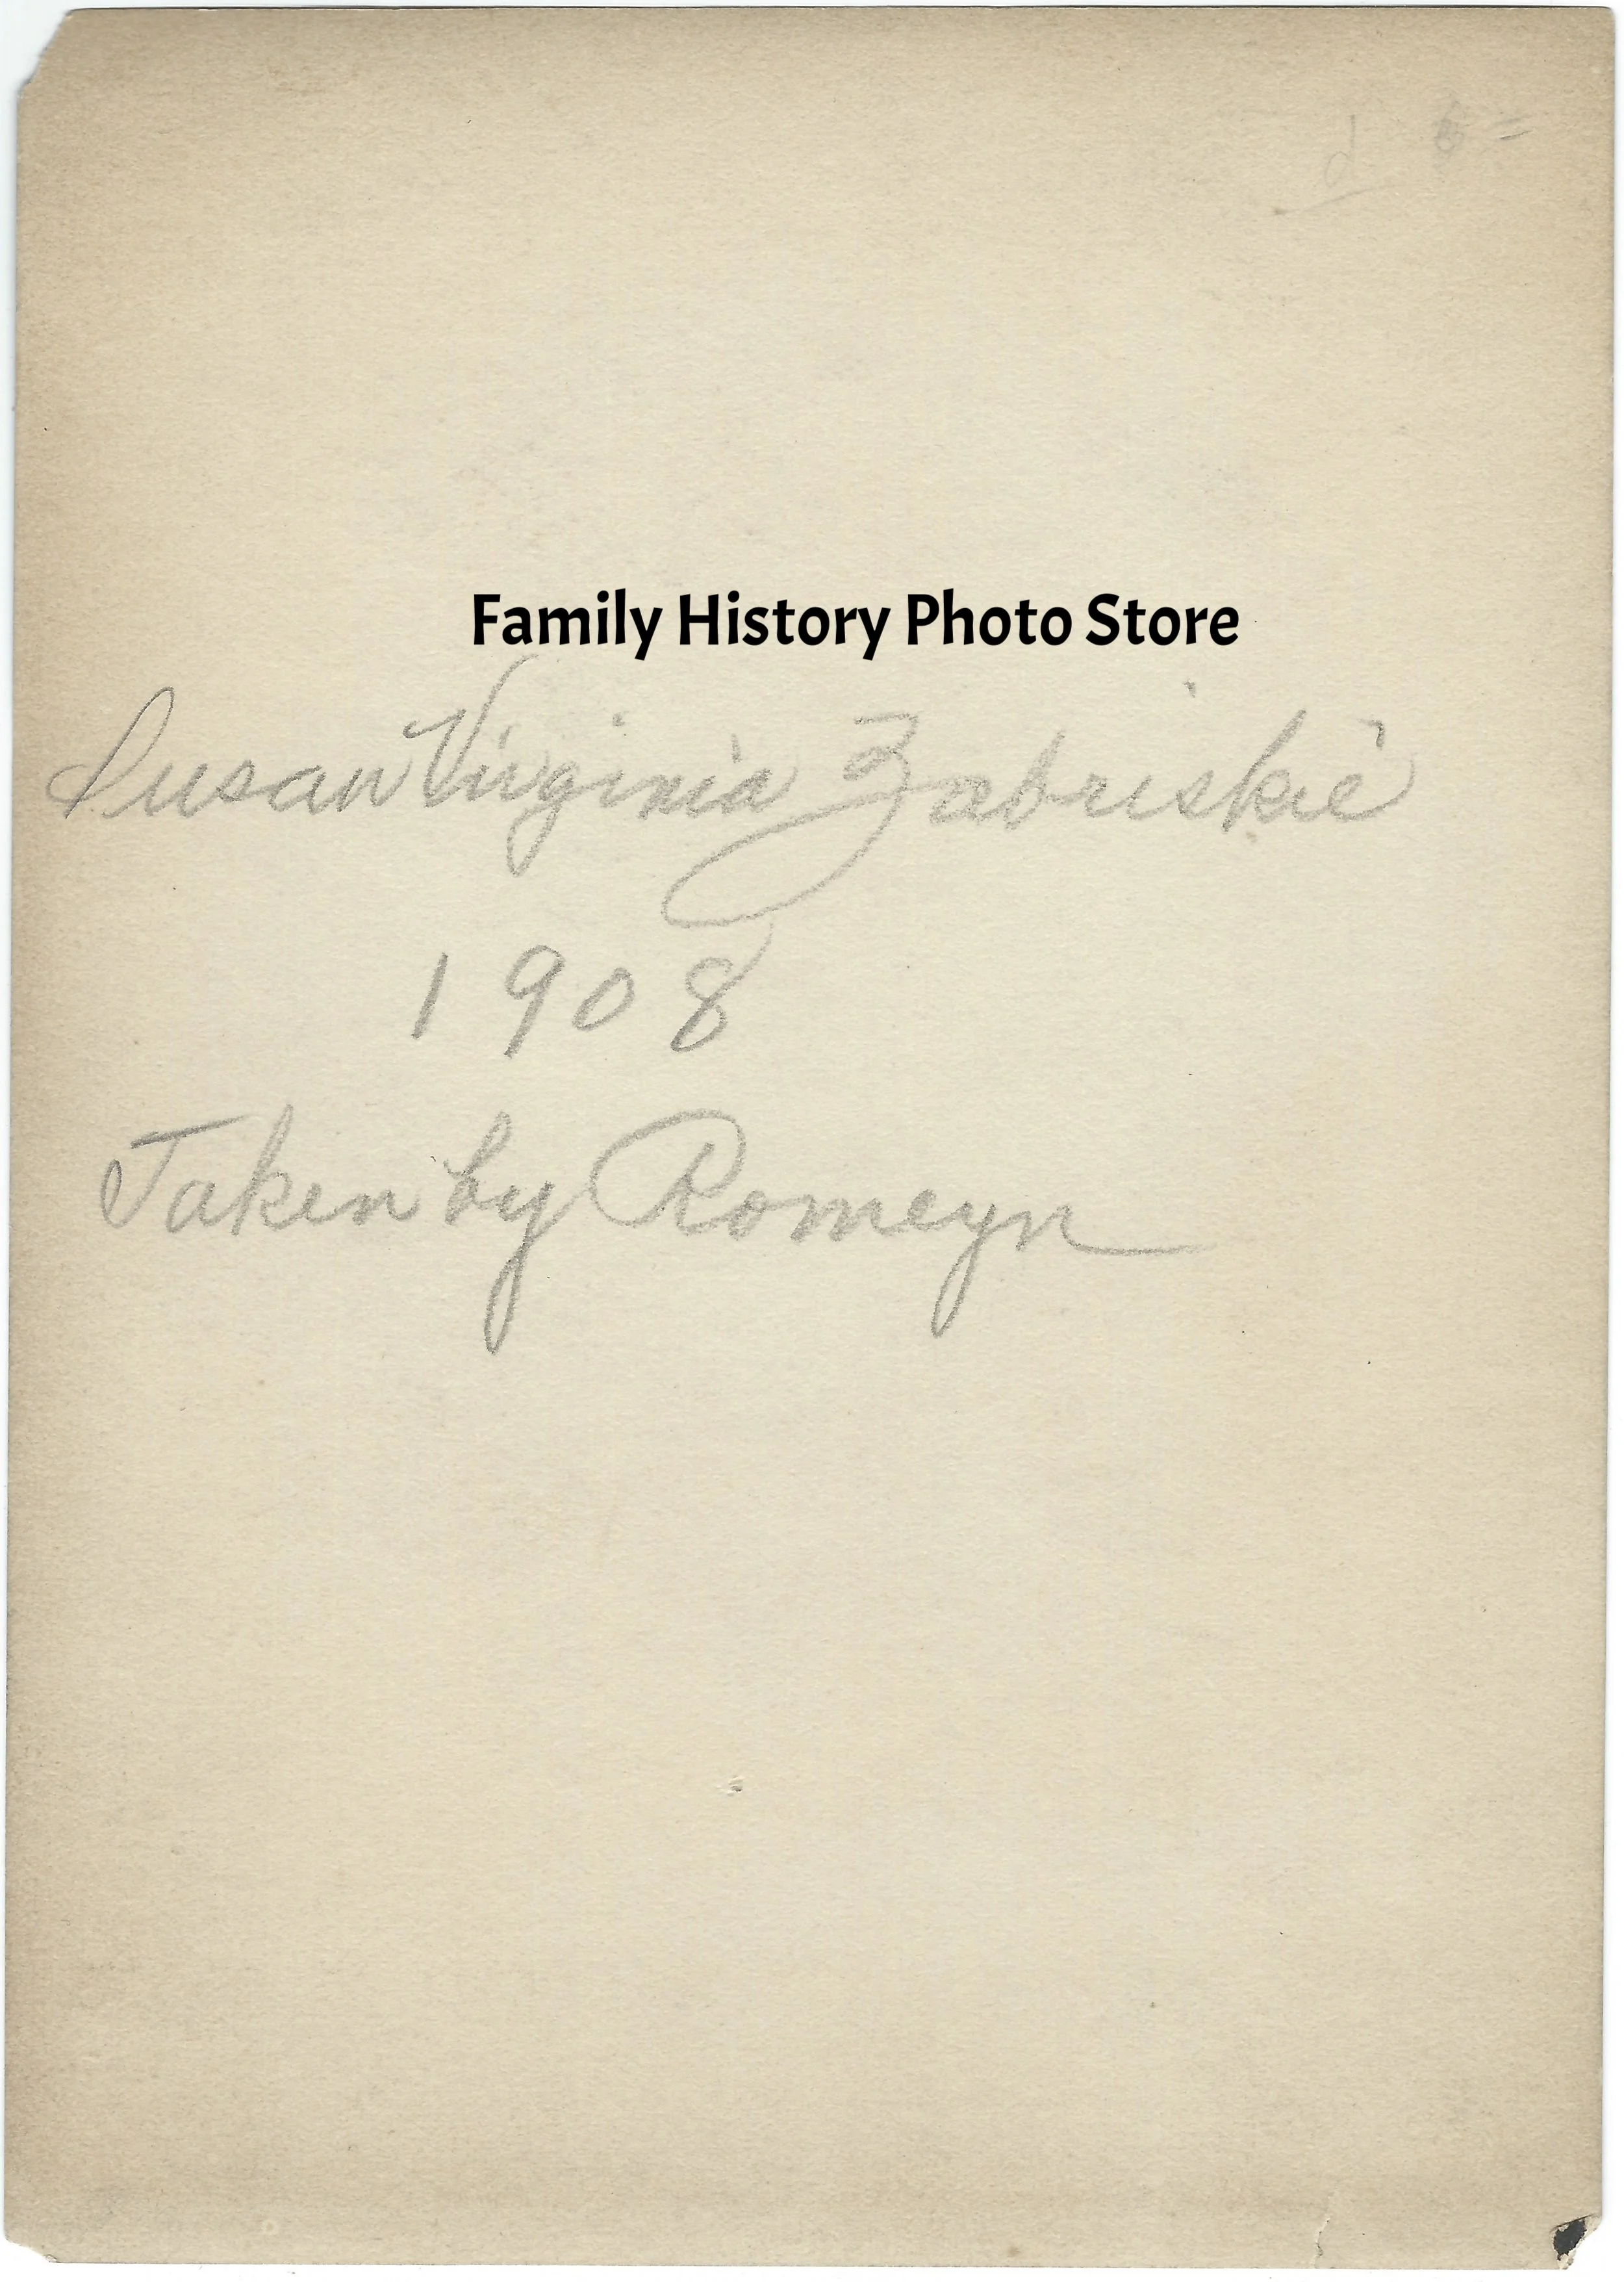 Family History Photo Store
Susan Virginia Zabriskie
1908
Taken by Romeyn